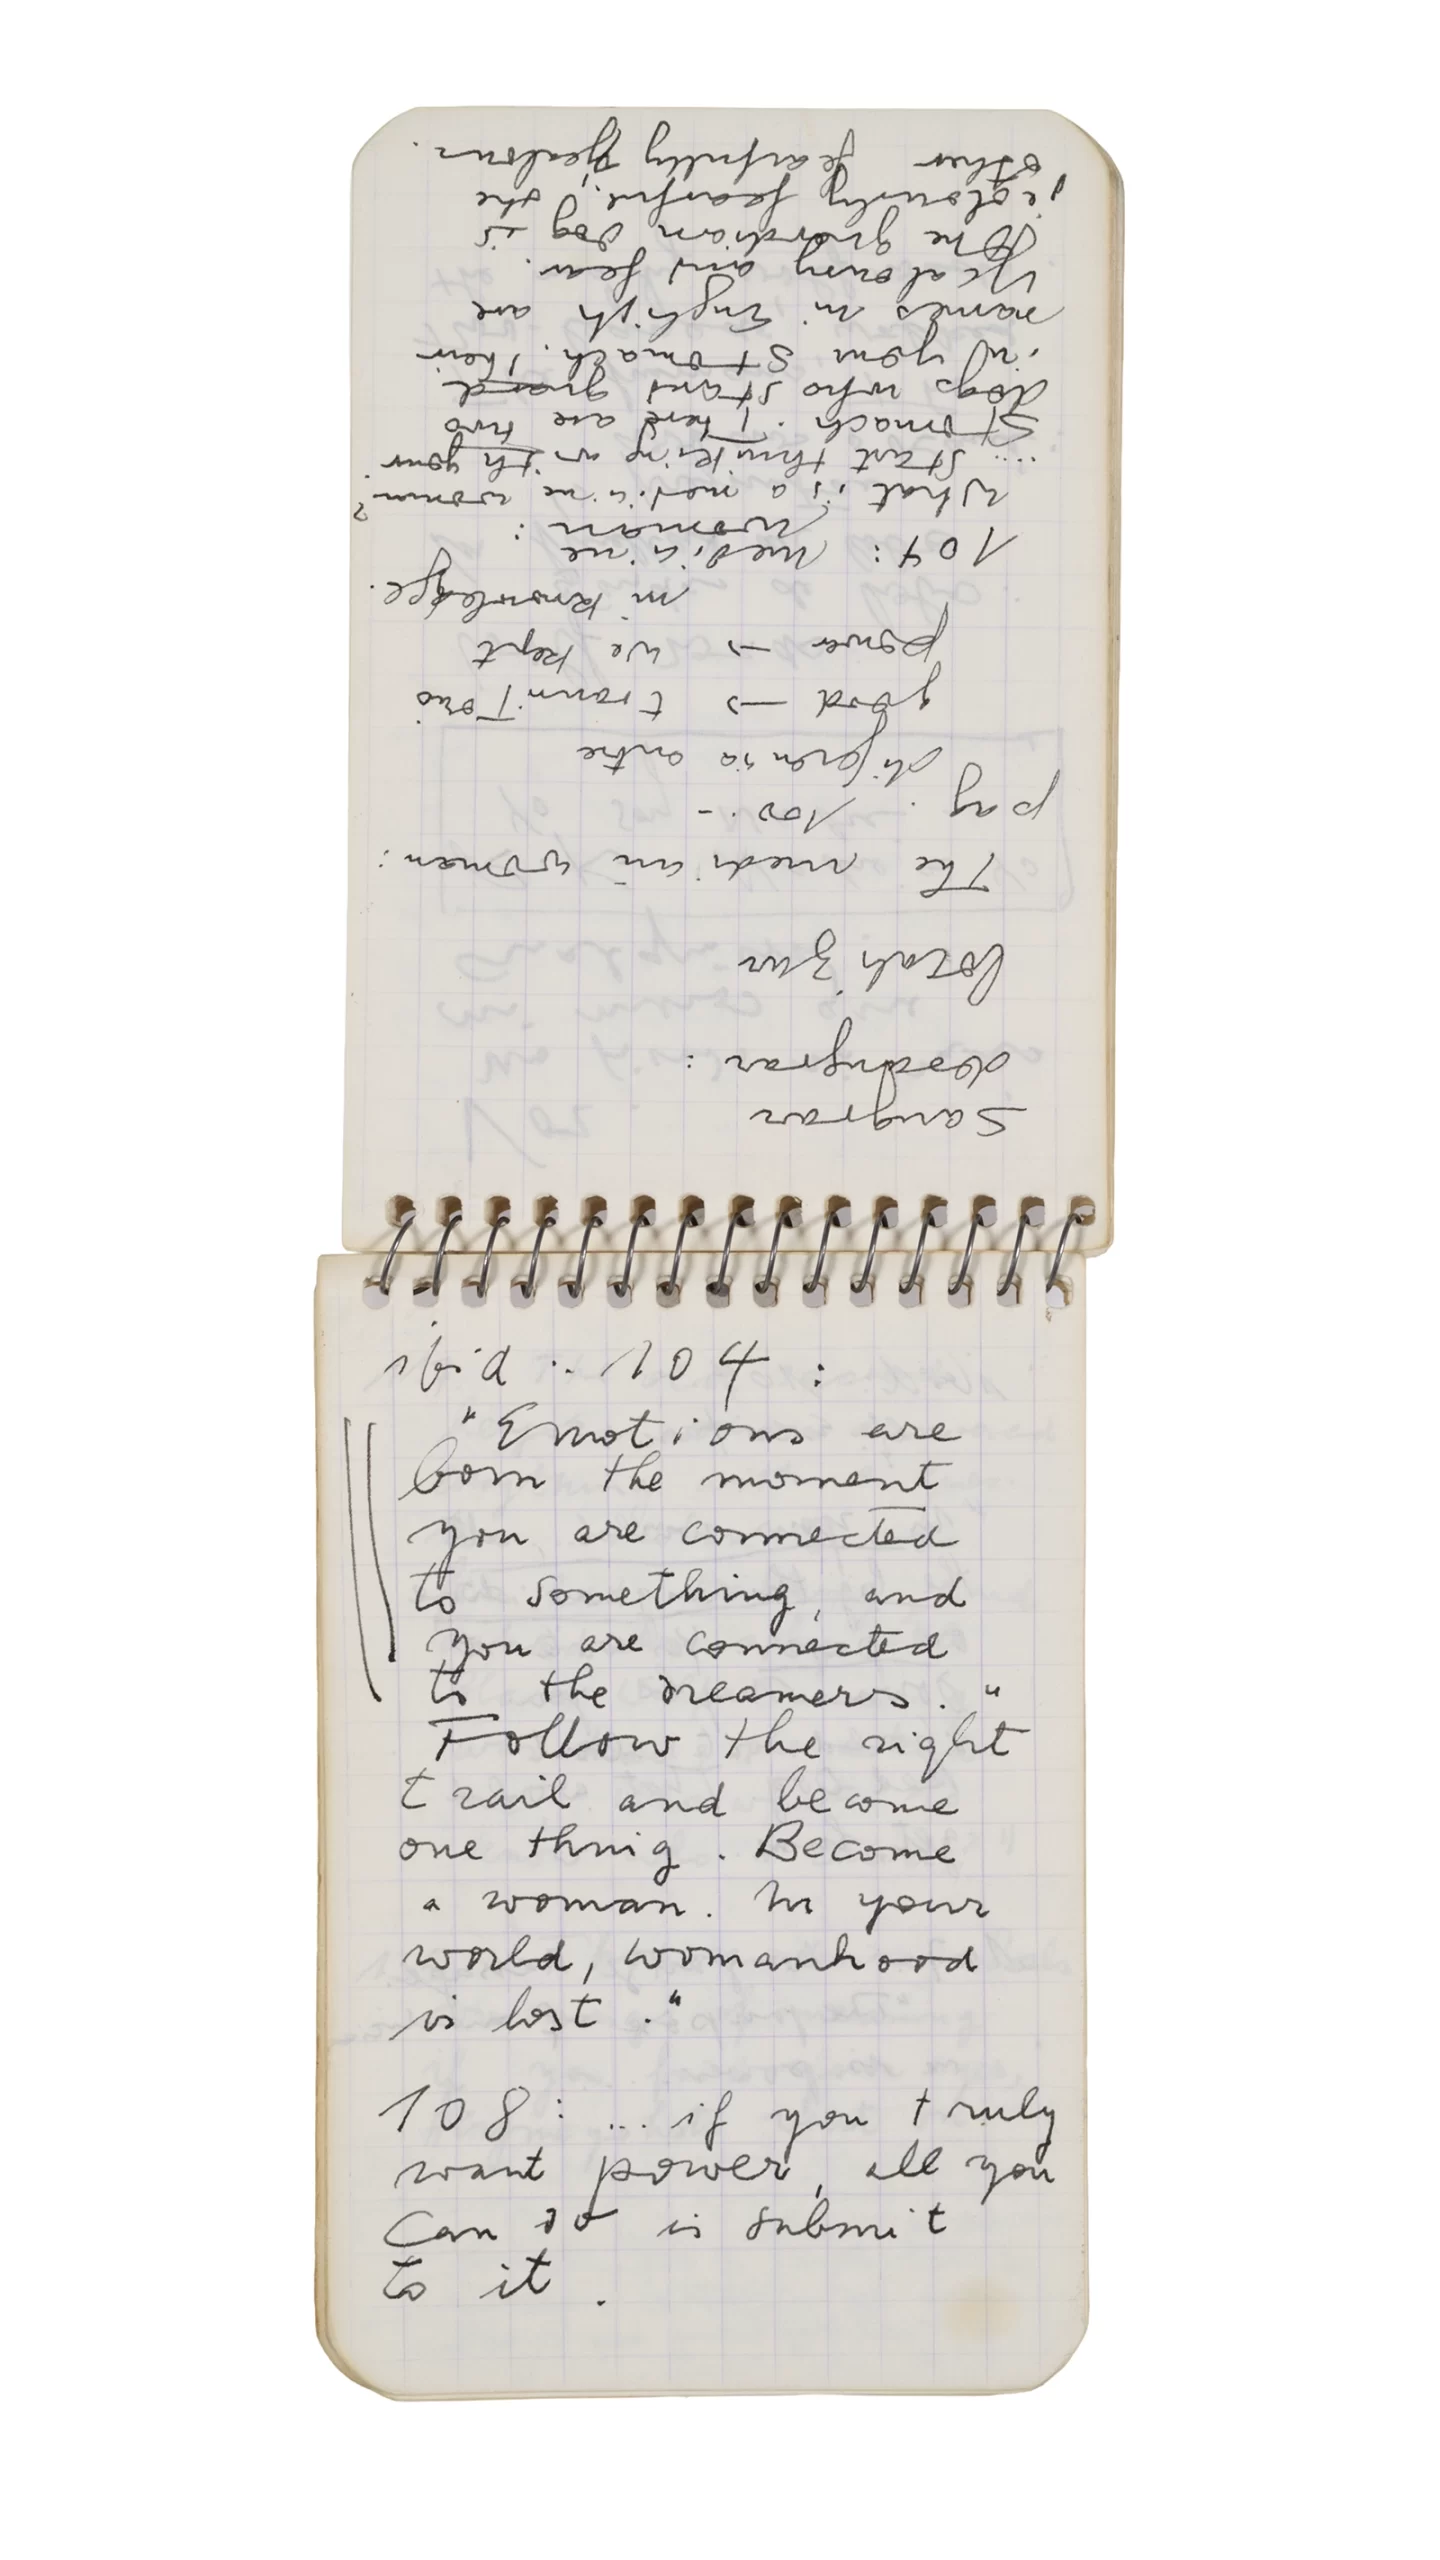 Sangrar
desangrar :
totalizar
The medicin woman :
pag. 100 . -
diferencia entre
good →
power → we kept
in knowledge.
104 : medicine
woman :
What is a medicine woman?
.... Start thinking with your
stomach. There are two
dogs who stand guard
in your stomach. Their
names in English are
jealousy and fear.
The guardian dog is
jealously fearful; the
other fearfully jealous.
ibid .. 104 :
"Emotions are
born the moment
you are connected
to something, and
you are connected
to the dreamers. "
Follow the right
trail and become
one thing. Become
a woman. In your
world, womanhood
is lost ."
108 : ... if you truly
want power, all you
can do is submit
to it .